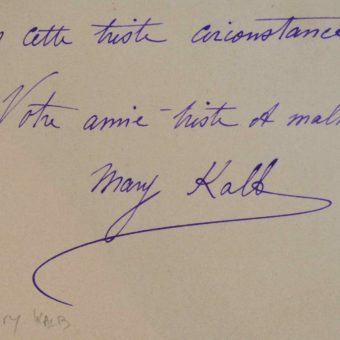 cette triste circonstance
Votre amie triste et mal
Mary Kalb
ry KALB